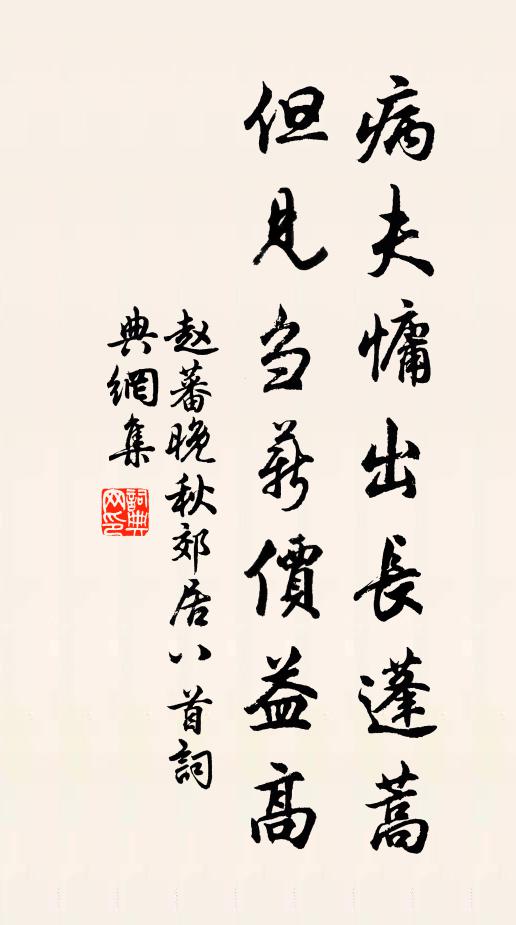 病夫慵出長蓬蒿
但見芻薪價益高
赵蕃晚秋郊居八首詞
典網集
詞典網印